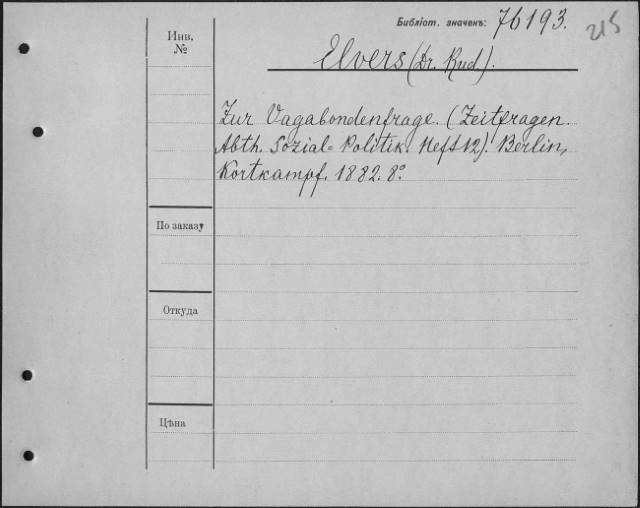 Библіот. значекъ: 76193.
215
Инв.
№
Elvers (Dr. Rud.).
Zur Vagabondenfrage. (Zeitfragen.
Abth. Sozial-Politik. Heft 12). Berlin,
Kortkampf. 1882. 8°.
По заказу
Откуда
Цѣна